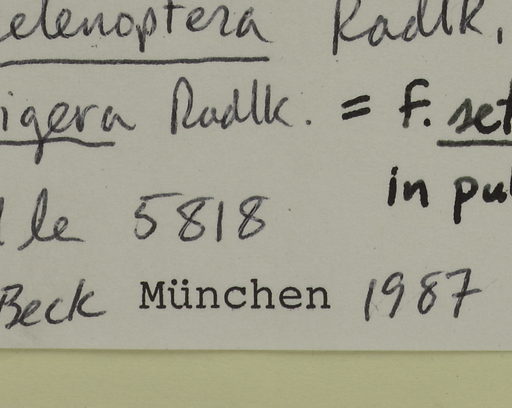 elenoptera Radlk.
igera Radlk. = f. set
le 5818
in pul
Beck München 1987